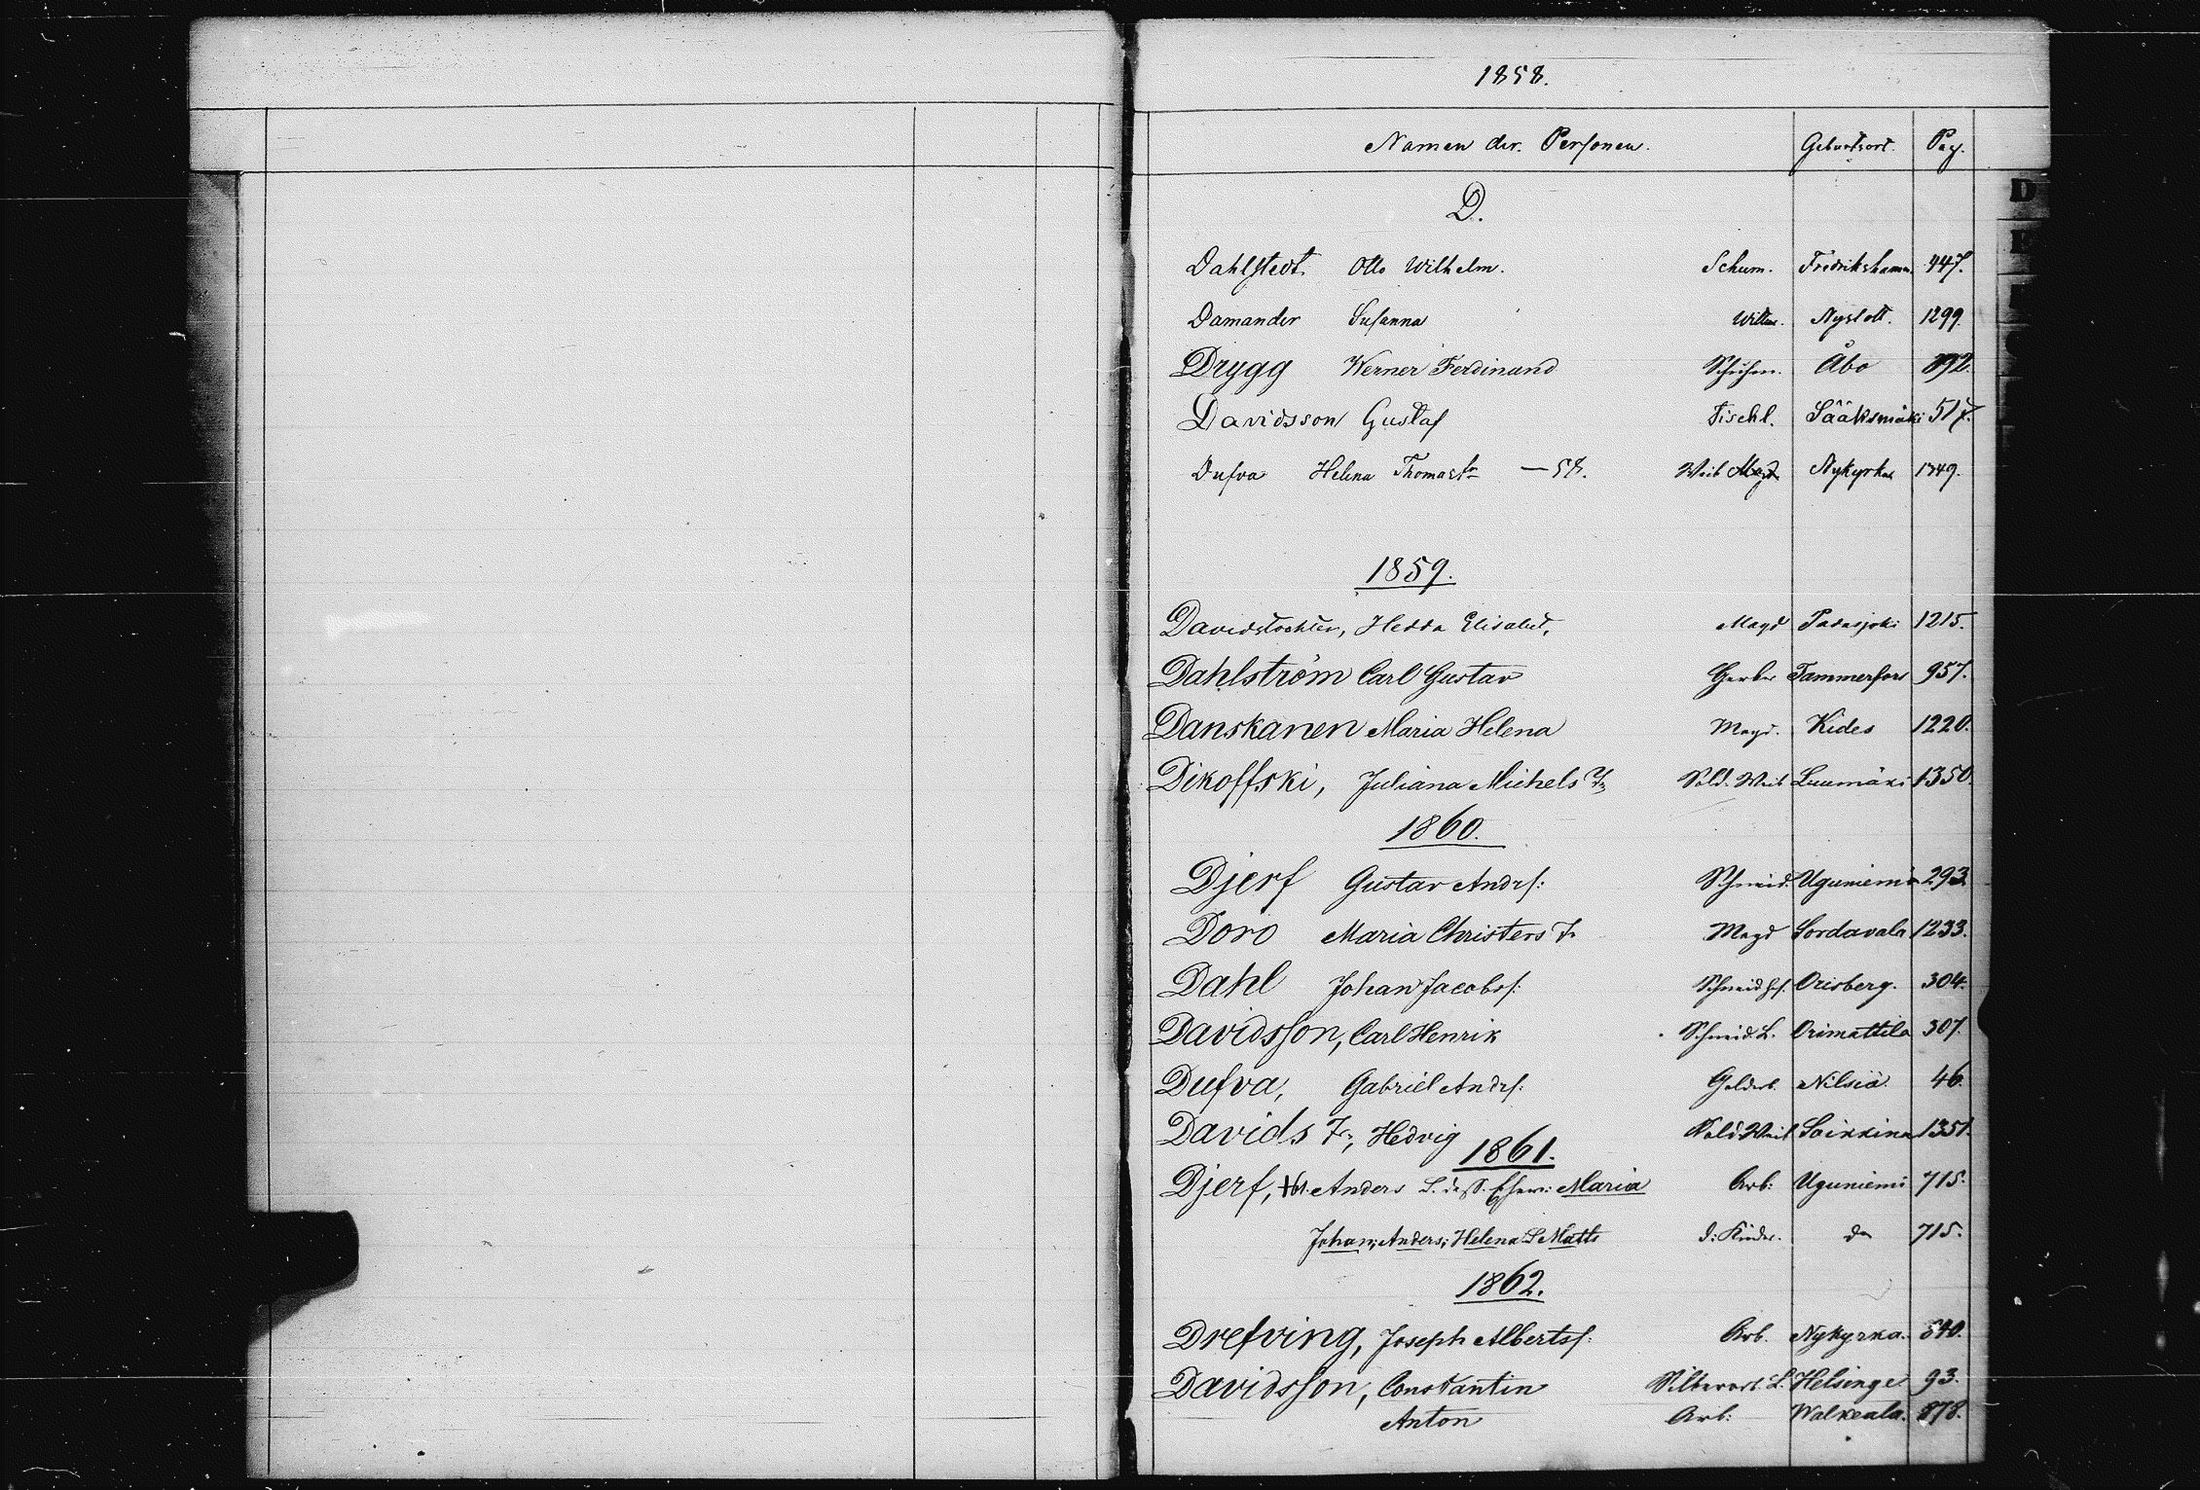 1858.
Namen der Personen. Geburtsort. Pag.
D.
Dahlstedt Otto Wilhelm. Schum. Fredrikshamn. 447.
Damander Susanna Nyslott. 1299.
Drygg Werner Ferdinand Schuhm. Åbo 892.
Davidsson Gustaf Tischl. Sääksmäki 517.
Dufva Helena Thomastr — 58. Weib Magd Nykyrka 1349.
1859.
Davidstochter, Hedda Elisabet, Magd Padasjoki 1215.
Dahlström Carl Gustav Gerber Tammerfors 957.
Danskanen Maria Helena Magd. Kides 1220.
Dikoffski, Juliana Michels Tr Sold. Weib Luumäki 1350.
1860.
Djerf Gustav Andrs: Schneid. Uguniemi 293.
Doro Maria Christers Tr Magd Sordavala 1233.
Dahl Johan Jacobs: Orisberg. 304.
Davidsson, Carl Henrik Schneid. L. Orimattila 307.
Dufva, Gabriel Andrs: Goldarb. Nilsiä 46.
Davids Tr, Hedvig Sold Weib Soikkina 1351.
1861.
Djerf, Anders Maria Arb: Uguniemi 715.
Johan; Anders; Helena & Matts d: Kinder. do 715.
1862.
Drefving, Joseph Alberts: Arb. Nykyrka. 540.
Davidsson, Constantin Silberarb. L. Helsinge 93.
Anton Arb: Walkeala. 878.
D